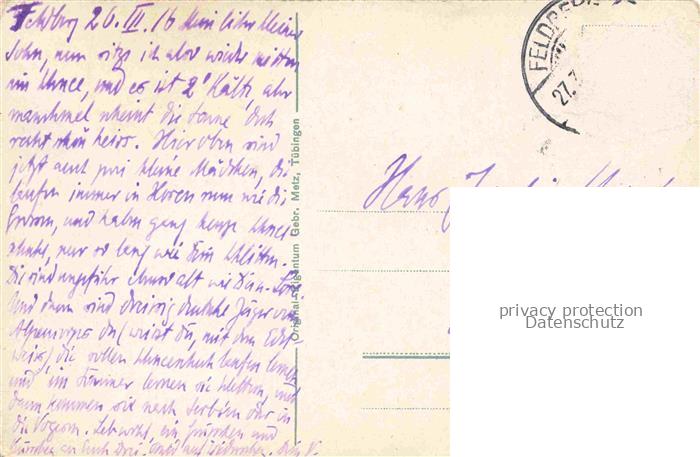 Feldberg 26. III. 16 Mein lieber kleiner
Sohn, nun sitze ich also wieder mitten
im Schnee, und es ist 2° Kälte, aber
manchmal scheint die Sonne doch
recht schön heiss. Hier oben sind
jetzt auch zwei kleine Mädchen, die
laufen immer in Hosen rum wie die
Grossen, und haben ganz kurze Schnee
schuhe, nur so lang wie Dein Schlitten.
Die sind ungefähr ebenso alt wie Du u.
Und dann sind dreissig deutsche Jäger vom
Alpenkorps da (weisst Du, mit dem Edel
weiss), die sollen Schneeschuh laufen lernen
und im Sommer lernen sie klettern, und
dann kommen sie nach Serbien oder in
die Vogesen. Leb wohl, ein Grüsschen und
an Euch Drei. Dein V.
Original-Eigentum Gebr. Metz, Tübingen
FELDBERG
27.3
Hans
privacy protection
Datenschutz